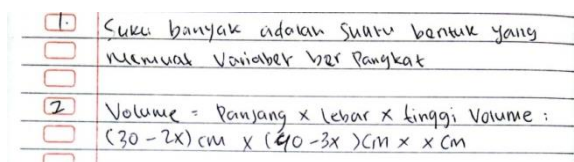 1. Suku banyak adalah Suatu bentuk yang
memuat Variabel ber Pangkat
2 Volume = Panjang x lebar x tinggi Volume :
(30 - 2x) cm x (40 - 3x) cm x x cm